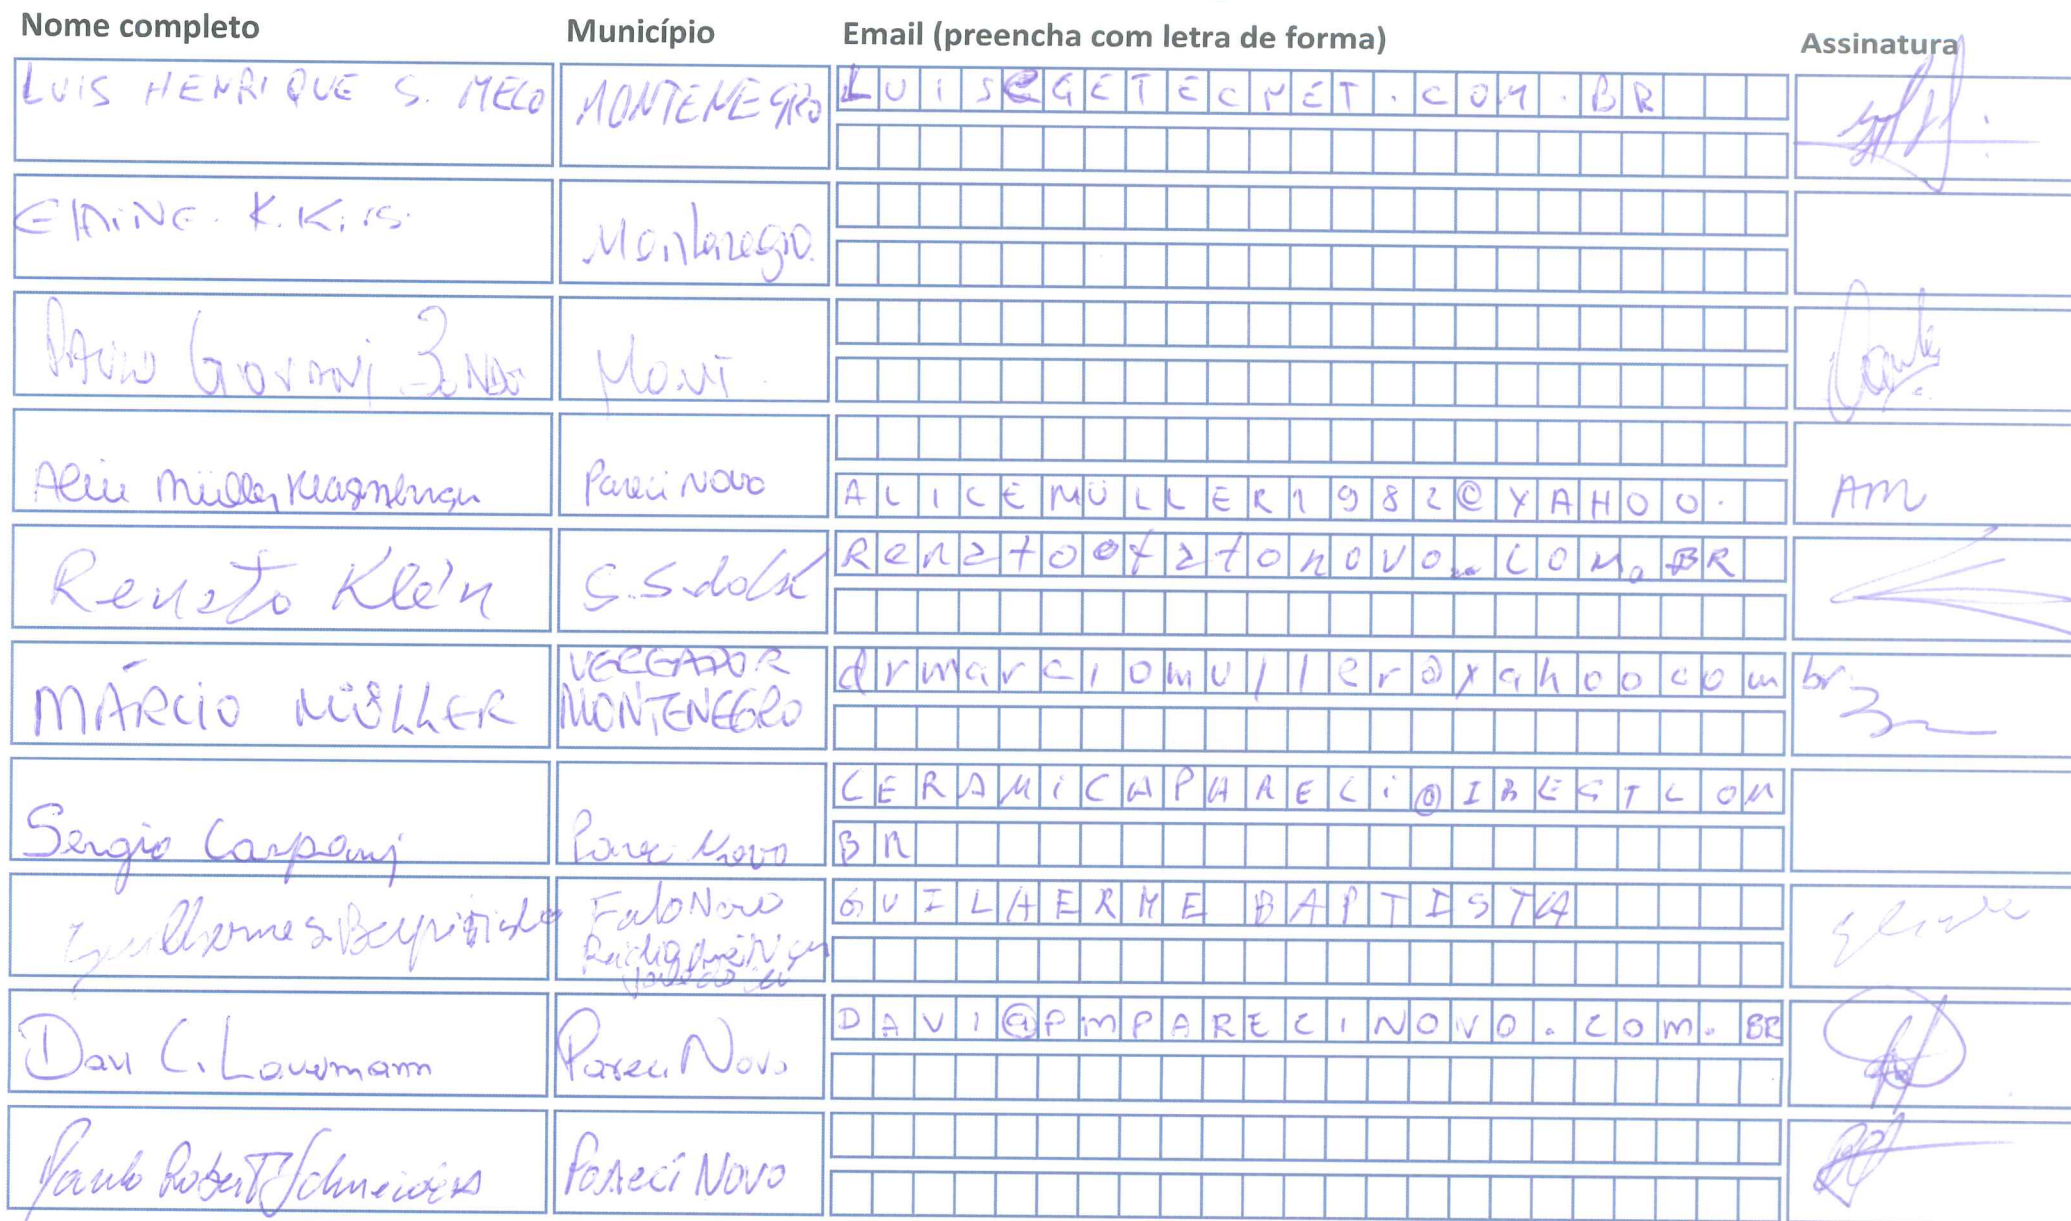 Nome completo Município Email (preencha com letra de forma) Assinatura
LUIS HENRIQUE S. MELO MONTENEGRO LUIS@GETECNET.COM.BR
ELAINE K. Montenegro
PAULO GIOVANI Mont
Alice Müller Parecí Novo ALICEMÜLLER1982@YAHOO. AM
Renato Klein S.S. do Caí Renato@fatonovo.com.BR
MÁRCIO MÜLLER VEREADOR drmarciomuller@yahoocom br
MONTENEGRO
CERAMICAPARECi@IBESTCOM
Sergio Pareci Novo BR
Guilherme Baptista Fato Novo GUILHERME BAPTISTA
Davi C. Pareci Novo DAVI@PMPARECINOVO.COM.BR
Paulo Robert Schneiders Pareci Novo